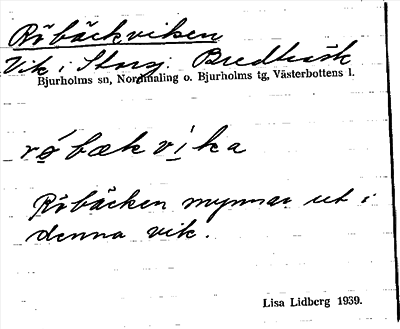 Röbäckviken
Vik i Storsj. Bredträsk
Bjurholms sn, Nordmaling o. Bjurholms tg, Västerbottens l.
róbækvika
Röbäcken mynnar ut i
denna vik.
Lisa Lidberg 1939.